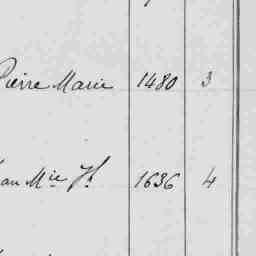 Pierre Marie 1480 3
an Mie Jh 1636 4